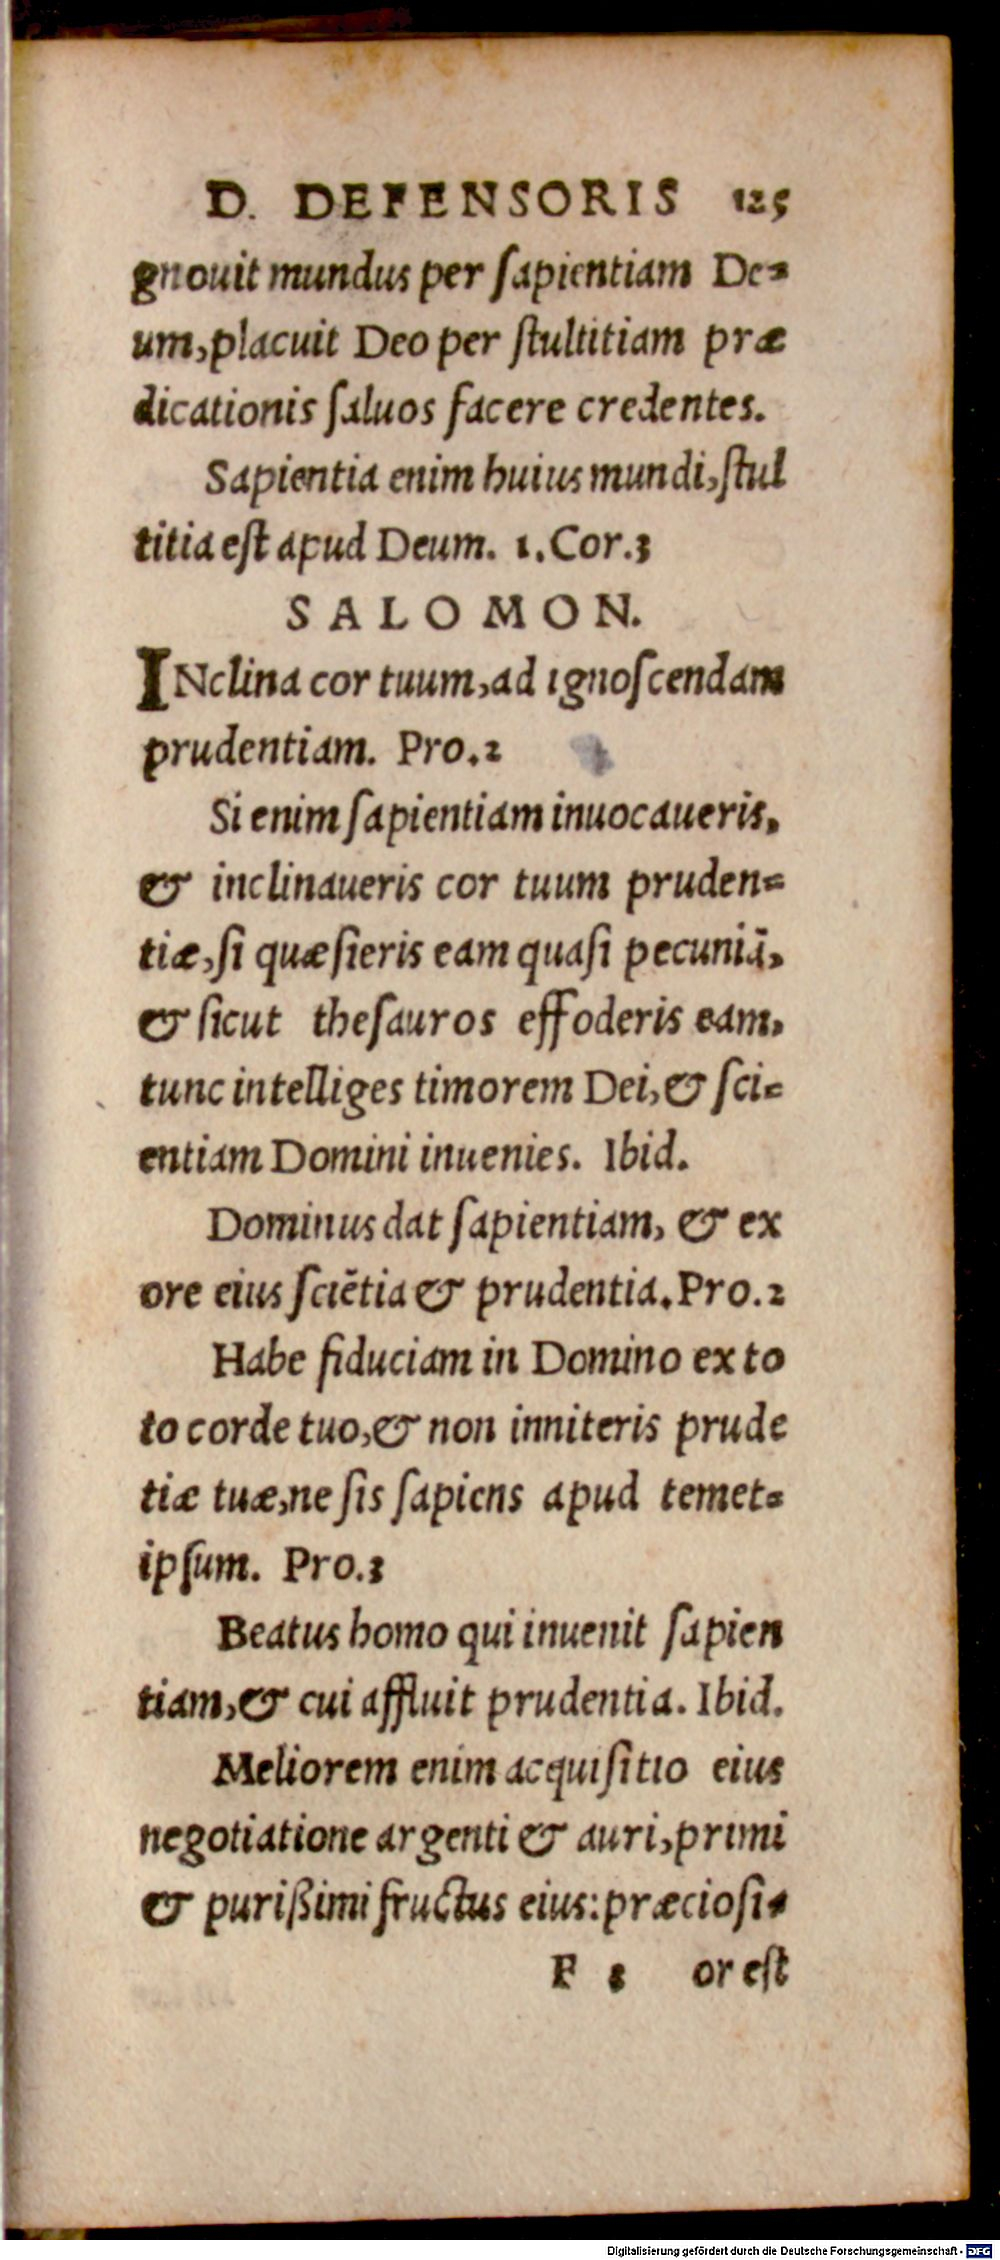 D. DEFENSORIS 125
gnouit mundus per ſapientiam De-
um, placuit Deo per ſtultitiam præ
dicationis ſaluos facere credentes.
Sapientia enim huius mundi, ſtul
titia eſt apud Deum. 1. Cor. 3
SALOMON.
INclina cor tuum, ad ignoſcendam
prudentiam. Pro. 2
Si enim ſapientiam inuocaueris,
& inclinaueris cor tuum pruden-
tiæ, ſi quæſieris eam quaſi pecuniā,
& ſicut theſauros effoderis eam,
tunc intelliges timorem Dei, & ſci-
entiam Domini inuenies. Ibid.
Dominus dat ſapientiam, & ex
ore eius ſciētia & prudentia. Pro. 2
Habe fiduciam in Domino ex to
to corde tuo, & non inniteris prude
tiæ tuæ, ne ſis ſapiens apud temet-
ipſum. Pro. 3
Beatus homo qui inuenit ſapien
tiam, & cui affluit prudentia. Ibid.
Meliorem enim acquiſitio eius
negotiatione argenti & auri, primi
& purißimi fructus eius: præcioſi-
F or eſt
Digitalisierung gefördert durch die Deutsche Forschungsgemeinschaft - DFG